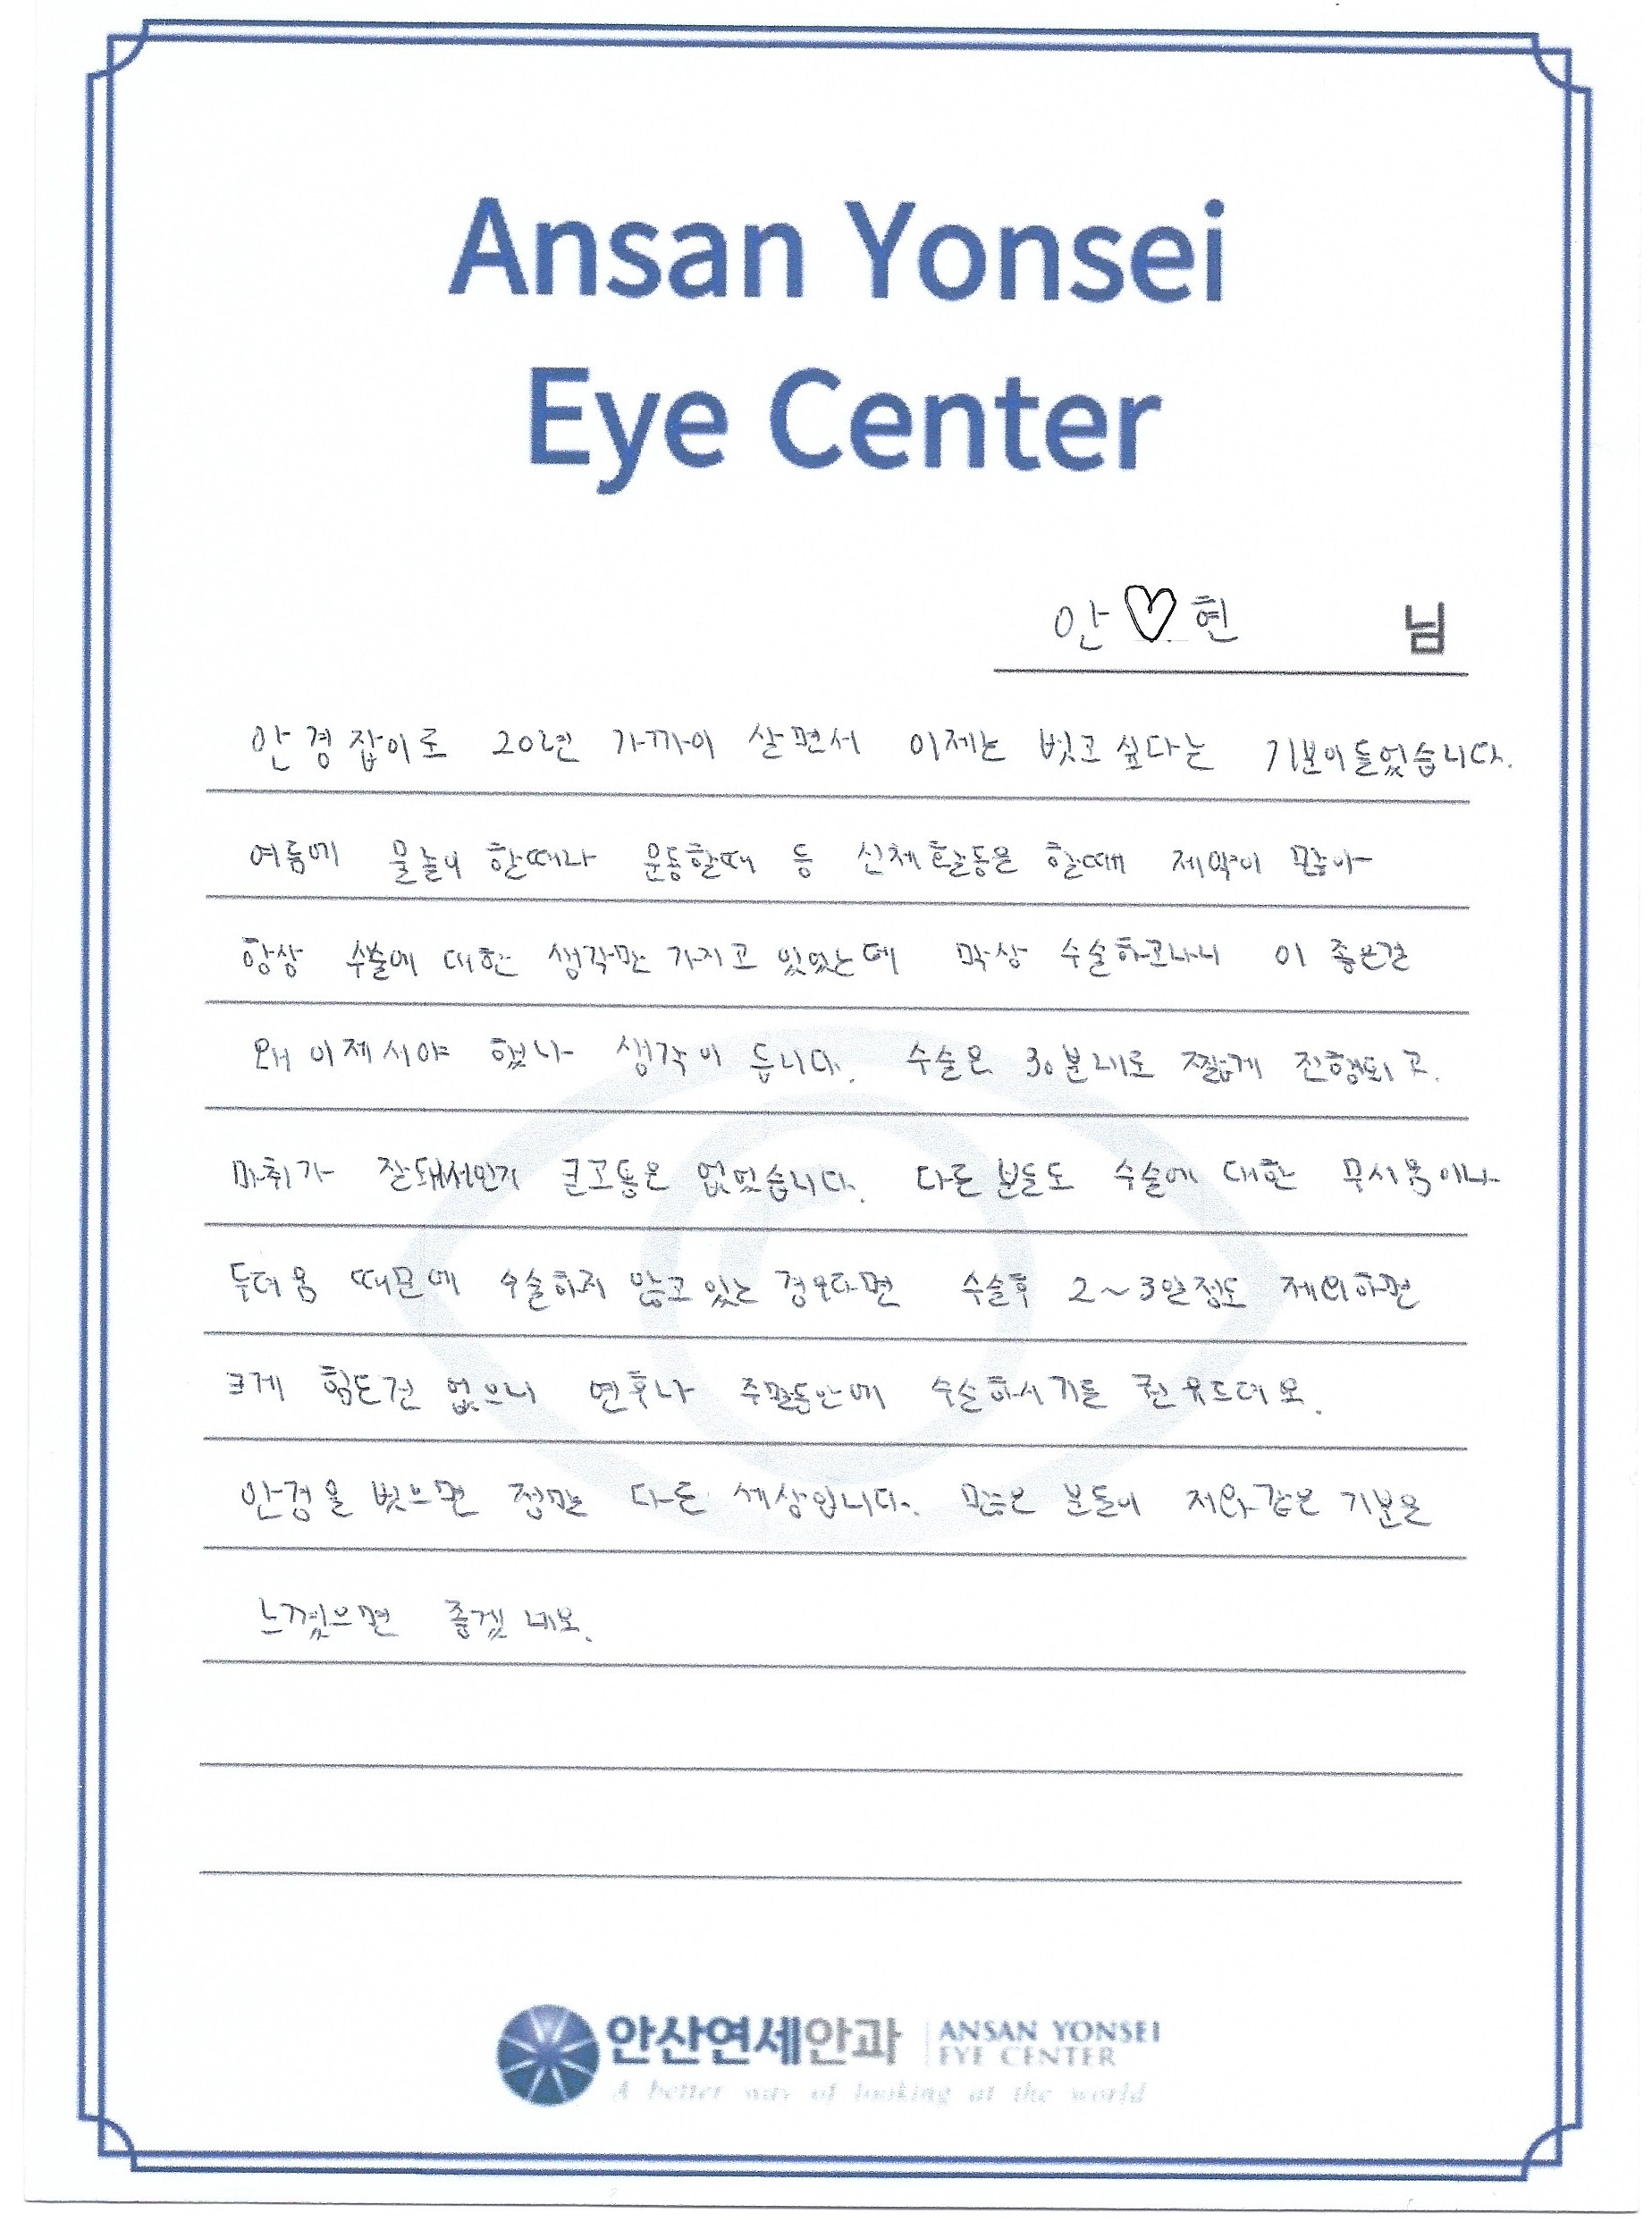 Ansan Yonsei
Eye Center
안♡현 님
안경잡이로 20년 가까이 살면서 이제는 벗고싶다는 기분이들었습니다.
여름에 물놀이 할때나 운동할때 등 신체활동을 할때 제약이 많아
항상 수술에 대한 생각만 가지고 있었는데 막상 수술하고나니 이 좋은걸
왜 이제서야 했나 생각이 듭니다. 수술은 30분내로 짧게 진행되고.
마취가 잘돼서인지 큰고통은 없었습니다. 다른 분들도 수술에 대한 무서움이나
두려움 때문에 수술하지 않고 있는 경우라면 수술후 2~3일정도 제외하면
크게 힘든건 없으니 연휴나 주말동안에 수술하시기를 권유드려요.
안경을 벗으면 정말 다른 세상입니다. 많은 분들이 저와같은 기분을
느꼈으면 좋겠네요.
안산연세안과 ANSAN YONSEI
EYE CENTER
A better way of looking at the world